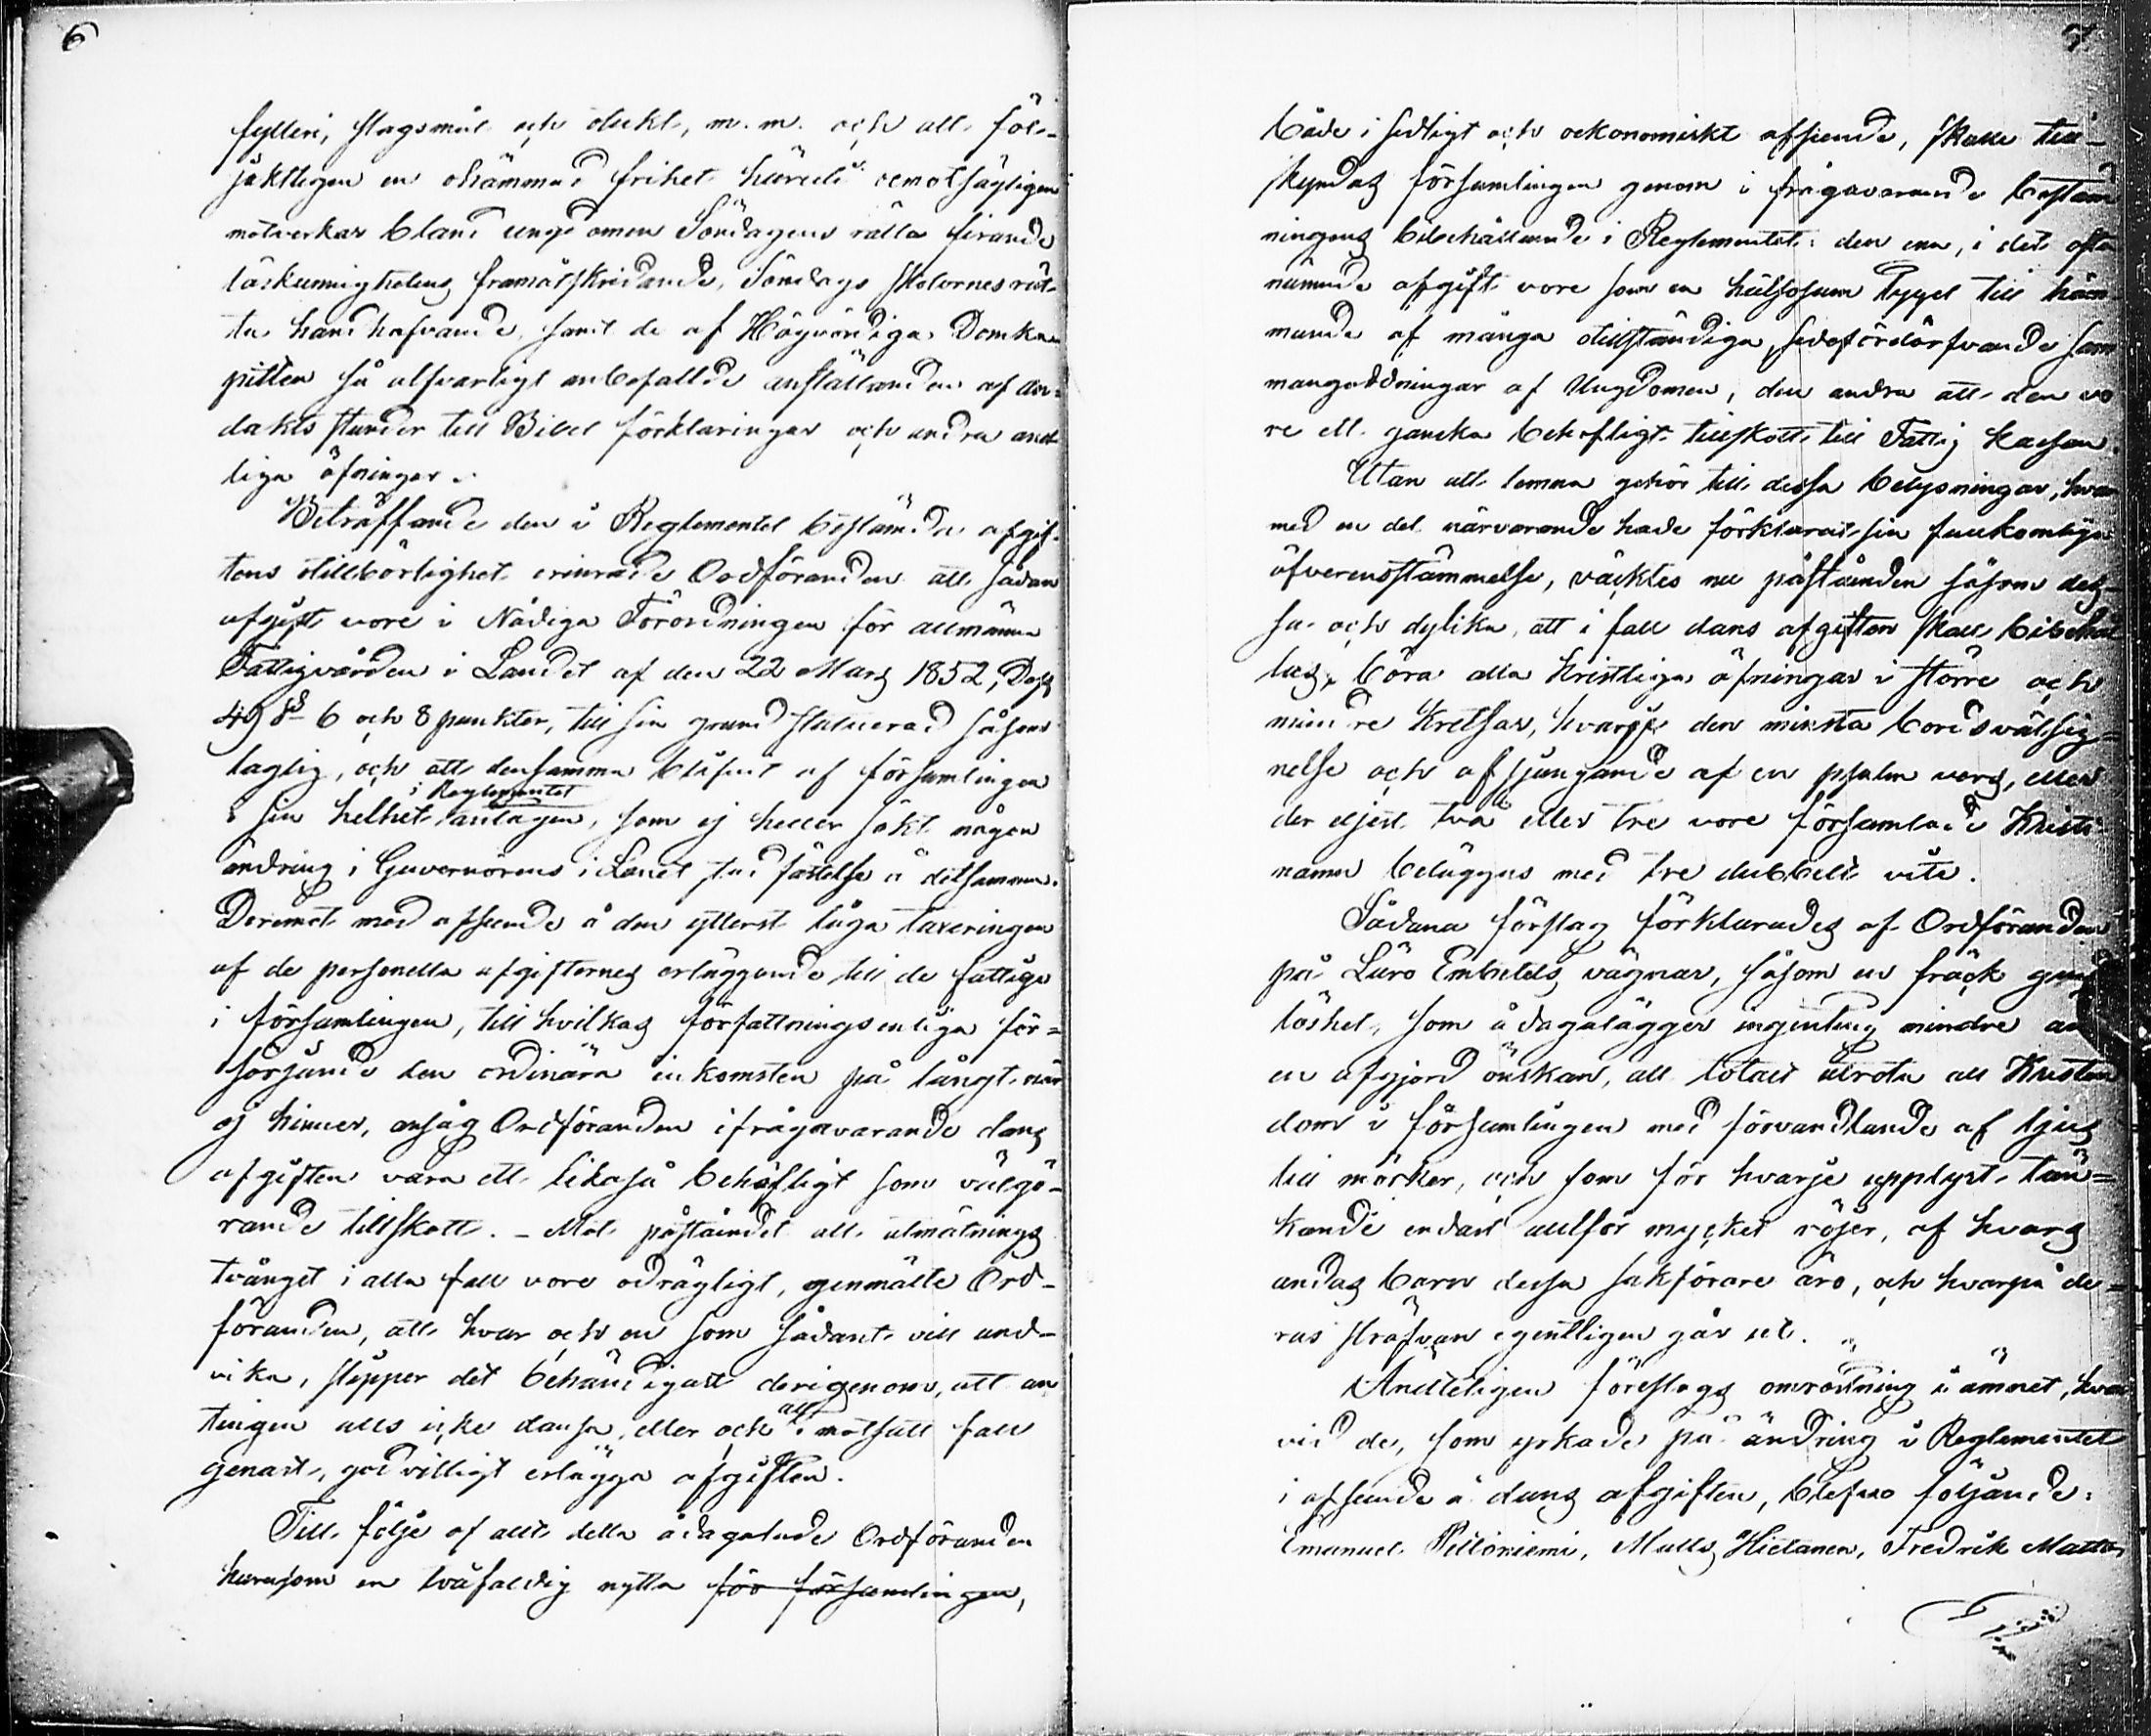 6
fylleri, slagsmål och dukt, m. m. och att föl-
jaktligen en ohämmad frihet häruti oemotsägligen
motverkar bland ungdomen Söndagens rätta firande
läskunnighetens framåtskridande, Söndags skolornes rät-
ta handhafvande, samt de af Högvördiga Domka-
pitlen så alfvarligt anbefallde anställanden af an-
dakts stunder till Bibel förklaringar och andra and-
liga öfningar.
Beträffande den i Reglementet bestämda afgif-
tens otillbörlighet erinrade Ordföranden att sådan
afgift vore i Nådiga Förordningen för allmänna
Fattigvården i Landet af den 22 Mars 1852, Dess
49 § 6 och 8 punkter, till sin grund statuerad såsom
laglig, och att densamma blifvit af församlingen
i Reglementet
i sin helhet antagen, som ej heller sökt någon
ändring i Guvernörens i Länet stadfästelse å detsamma.
Deremot med afseende å den ytterst låga taxeringen
af de personella afgifternes erläggande till de fattiga
i församlingen, till hvilkas författningsenliga för-
sörjande den ordinära inkomsten på långt när
ej hinner, ansåg Ordföranden ifrågavarande dans
afgiften vara ett likaså behöfligt som välgö-
rande tillskott. - Mot påståendet att utmätnings
tvånget i alla fall vore odrägligt, genmälte Ord-
föranden, att hvar och en som sådant vill und-
vika, slipper det behändigast derigenom, att an
tingen alls icke dansa, eller och att i motsatt fall
genast, godvilligt erlägga afgiften.
Till följe af allt detta ådagalade Ordföranden
hurusom en tvåfaldig nytta för församlingen,
7
både i sedligt och oekonomiskt afseende, skulle till-
skyndas församlingen genom i frågavarande bestäm
ningens bibehållande i Reglementet: den ena, i det ofta
nämnde afgift vore som en hälsosam tygel till häm-
mande af många otillständiga, sedefördärfvande sam
mangaddningar af Ungdomen, den andra att den vo
re ett ganska behöfligt tillskott till Fattig kassan.
Utan att lemna gehör till dessa belysningar, hvar
med en del närvarande hade förklarat sin fullkomliga
öfverensstämmelse, väcktes nu påståenden såsom des-
sa och dylika, att i fall dans afgiften skall bibehål
las, böra alla kristliga öfningar i större och
mindre kretsar, hvarje den minsta bordsvälsig-
nelse och afsjungande af en psalm vers, eller
der eljest två eller tre vore församlade i Kristi
namn beläggas med tre dubbelt vite.
Sådana förslag förklarades af Ordföranden
på Läro Embetets vägnar, såsom en fräck gud
löshet, som ådagalägger ingenting mindre än
en afgjord önskan, att totalt utrota all Kristen
dom i församlingen med förvandlande af ljus
till mörker, och som för hvarje upplyst, tän-
kande endast alltför mycket röjer, af hvars
andas barn dessa sakförare äro, och hvarpå de-
ras sträfvan egentligen går ut.
Ändteligen föreslogs omröstning i ämnet, hvar
vid de, som yrkade på ändring i Reglementet
i afseende å dans afgiften, blefvo följande:
Emanuel Pelloniemi, Matts Hietanen, Fredrik Matts